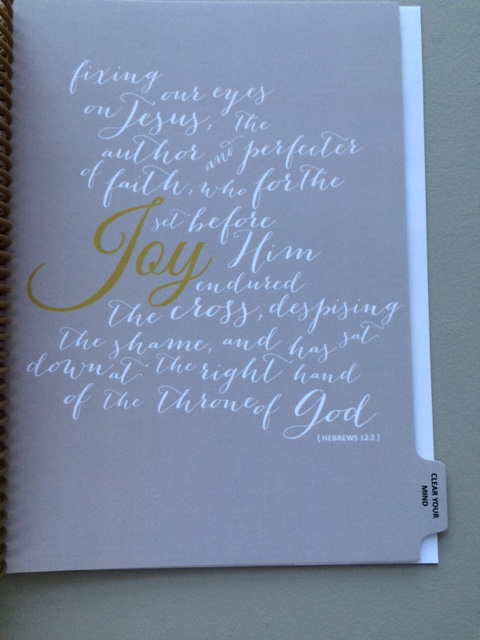 fixing
our eyes
on Jesus, the
author and perfecter
of faith, who for the
Joy set before
Him
endured
the cross, despising
the shame, and has sat
down at the right hand
of the throne of God
( HEBREWS 12:2 )
CLEAR YOUR
MIND